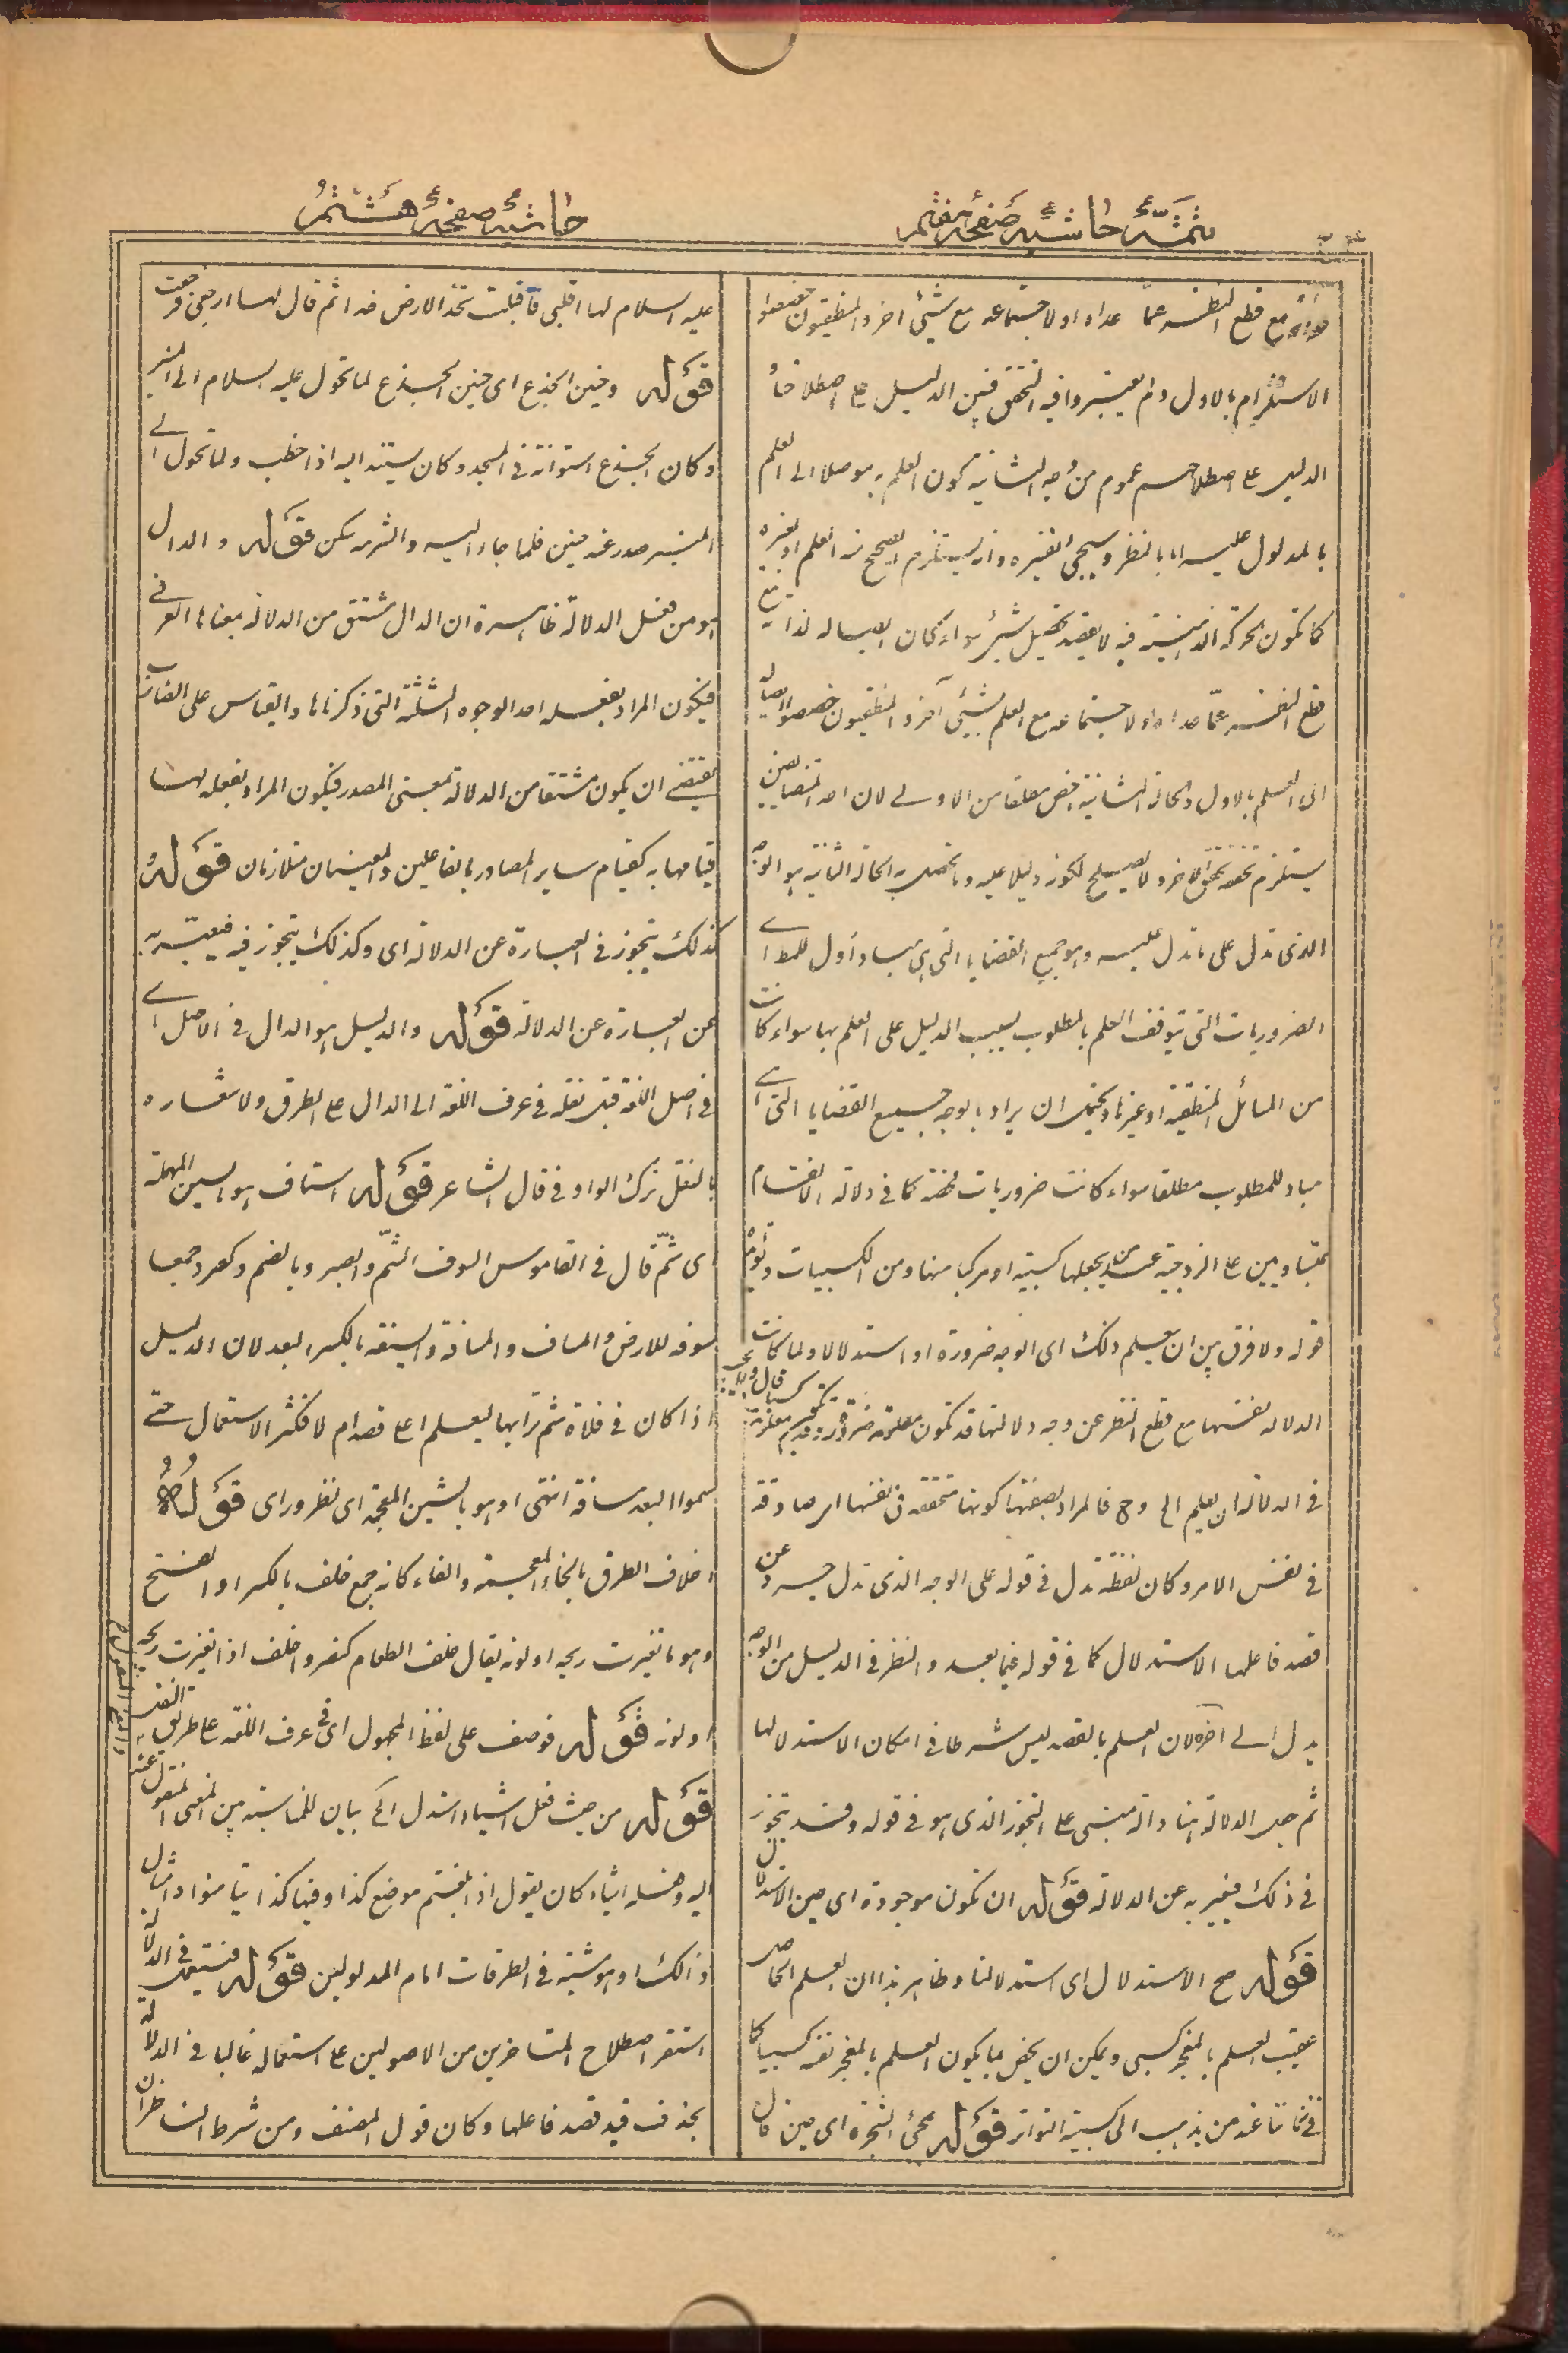 تتمّۂ حاشیۂ صفحۂ هفتم
مع قطع النظر عمّا عداه اولاجتماعه مع شیئ اخر والمنطقیون خصصوا
الاستلزام بالاول ولم یعتبروا فیه التحقق فبین الدلیل علی اصطلاحنا
الدلیل علی اصطلاحهم عموم من وجه الثانیة کون العلم به موصلا الی العلم
بالمدلول علیه اما بالنظر وسیجئ تفسیره وانه یستلزم الصحیح منه العلم او بغیره
کما تکون الحرکة الذهنیة فیه لا بقصد تحصیل شیئ سواء کان ایصاله لذاته مع
قطع النظر عمّا عداه اولاجتماعه مع العلم بشیئ آخر والمنطقیون خصصوا الایصال
الی العلم بالاول والحالة الثانیة اخص مطلقا من الاولی لان احد المتضایفین
یستلزم تحققه تحقق الاخر ولا یصلح لکونه دلیلا علیه وما تحصل به الحالة الثانیة هو الوجه
الذی تدل علی ما تدل علیه وهو جمیع القضایا التی هی مباد اول للمط ای
الضروریات التی یتوقف العلم بالمطلوب بسبب الدلیل علی العلم بها سواء کانت
من المسائل المنطقیة او غیرها ویحتمل ان یراد بالوجه جمیع القضایا التی هی
مباد للمطلوب مطلقا سواء کانت ضروریات محضة کما فی دلالة الانقسام
بمتساویین علی الزوجیة عند من یجعلها کسبیة او مرکبا منها ومن الکسبیات
قوله ولا فرق بین ان یعلم ذلک ای الوجه ضرورة او استدلالا ولما کانت
الدلالة نفسها مع قطع النظر عن وجه دلالتها قد تکون معلومة ضرورة وقد تکون معلومة
فی الدلالة ان یعلم الی وح فالمراد بصفتها کونها متحققه فی نفسها ای صادقة
فی نفس الامر وکان لفظة تدل فی قوله علی الوجه الذی تدل
قصد فاعلها الاستدلال کما فی قوله فیما بعد والنظر فی الدلیل من الوجه
یدل الی اخره لان العلم بالقصد لیس شرطا فی امکان الاستدلال بها
ثم جعل الدلالة هنا دالة مبنی علی التجوز الذی هو فی قوله وقد تجوز
فی ذلک فیعبر به عن الدلالة قوله ان تکون موجودة ای حین الاستدلال
قوله صح الاستدلال ای استدلالنا وظاهر هذا ان العلم الحاصل
عقیب العلم بالمعجز کسبی ویمکن ان یخص بما یکون العلم بالمعجز نفسه کسبیا کما
فی غائبا عنه من یذهب الی کسبیة التواتر قوله مجئ الشجرة ای حین قال
حاشیۂ صفحۂ هشتم
علیه السلام لها اقبلی فاقبلت تخد الارض خدا ثم قال لها ارجعی فرجعت
قوله وحنین الجذع ای حنین الجذع لما تحول علیه السلام الی المنبر
وکان الجذع اسطوانة فی المسجد وکان یستند الیه اذا خطب ولما تحول الی
المنبر صدر عنه حنین فلما جاء الیه والتزمه سکن قوله والدال
هو من فعل الدلالة ظاهره ان الدال مشتق من الدلالة بمعناها العرفی
فیکون المراد بفعله احد الوجوه الثلثة التی ذکرناها والقیاس علی الصفات
یقتضی ان یکون مشتقا من الدلالة بمعنی المصدر فیکون المراد بفعله لها
قیامها به کقیام سایر المصادر بالفاعلین والمعنیان متلازمان قوله
کذلک یتجوز فی العبارة عن الدلالة ای وکذلک یتجوز فیه فیعبّر به
عن العبارة عن الدلالة قوله والدلیل هو الدال فی الاصل ای
فی اصل اللغة قبل نقله فی عرف اللغة الی الدال علی الطرق ولاشعاره
بالنقل ترک الواو فی قال الشاعر قوله استاف هو بالسین المهملة
ای شمّ قال فی القاموس السوف الشمّ والصبر وبالضم وکصرد جمعا
سوفه للارض والمساف والمسافة والسیفة بالکسر البعد لان الدلیل
اذا کان فی فلاة شم ترابها لیعلم اعلی قصد ام لا فکثر الاستعمال حتی
سموا البعد مسافة انتهی او هو بالشین المعجمة ای نظر ورای قوله
اخلاف الطرق بالخاء المعجمة والفاء کانه جمع خلف بالکسر او الفتح
وهو ما تغیرت ریحه او لونه یقال خلف الطعام کنصر واخلف اذا تغیرت ریحه
او لونه قوله فوصف علی لفظ المجهول ای فی عرف اللغة علی طریق النقل
قوله من حیث فعل اشیاء استدل الخ بیان للمناسبة بین المعنی المنقول عنه
الیه وفعله اشیاء کان یقول اذا بلغتم موضع کذا وفیها کذا تیامنوا وامثال
ذالک او هو شیئه فی الطرقات امام المدلولین قوله فتستعمل فی الدلالة
استقر اصطلاح المتاخرین من الاصولین علی استعماله غالبا فی الدلالة
بحذف قید قصد فاعلها وکان قول المصنف ومن شرط الناظر ان